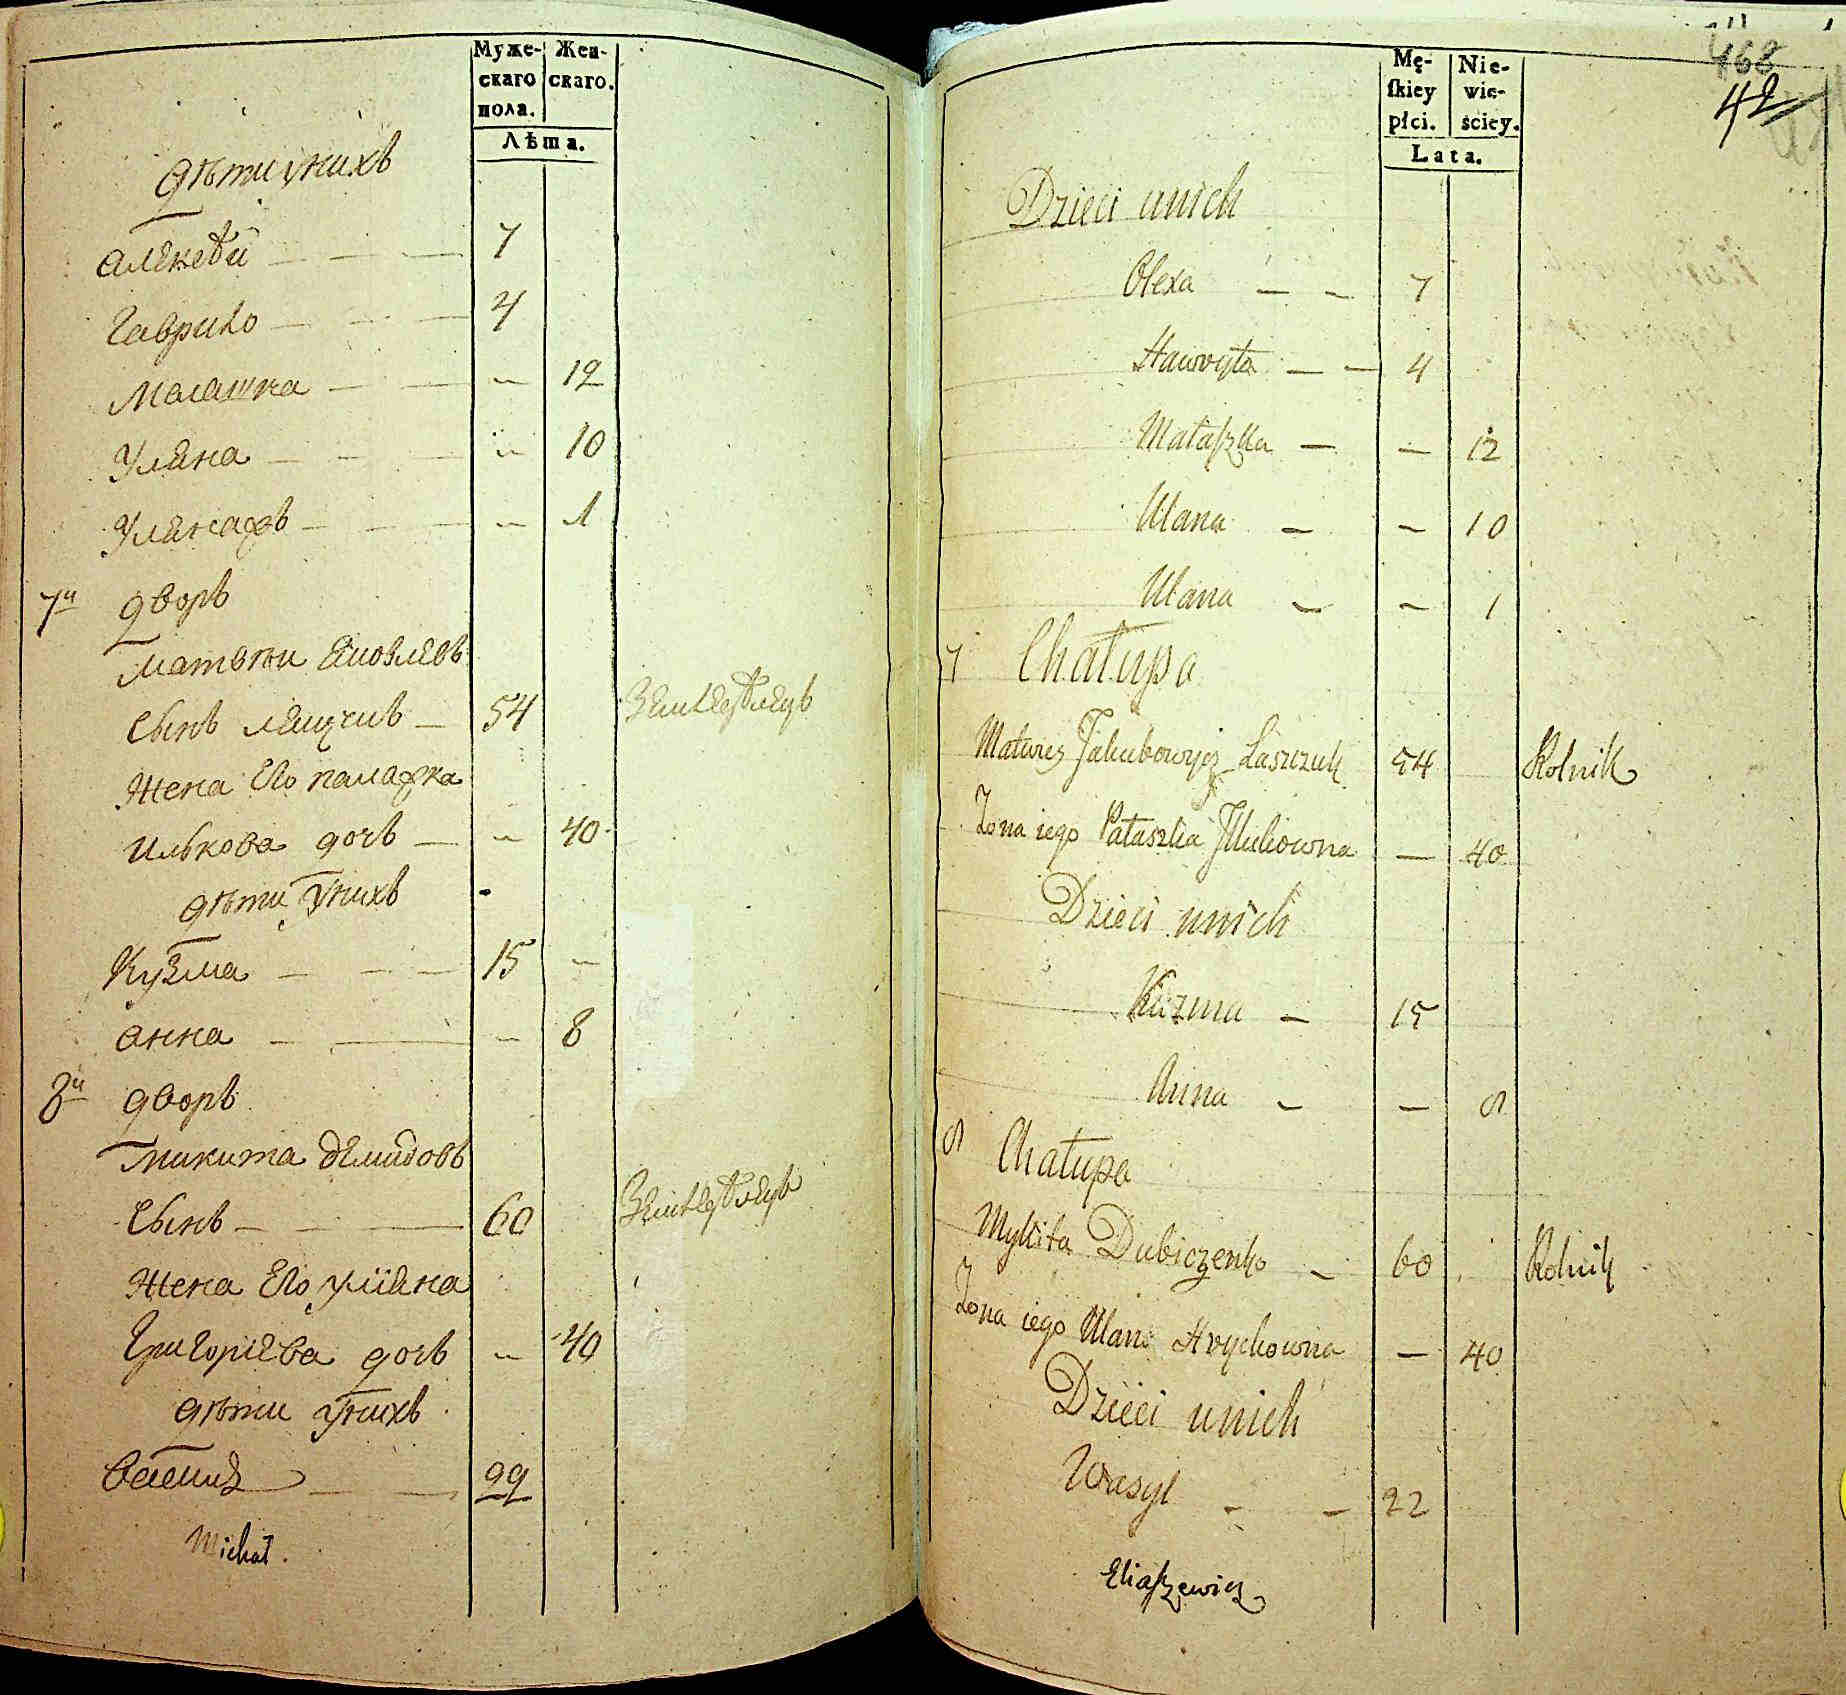 Муже-
скаго
пола.
Жен-
скаго.
Лѣта.
дѣти унихъ
Алексѣй 7
Гаврило 4
Малашка 12
Уляна 10
Уляна 1
7й дворъ
Матвѣй Яковлевъ
Сынъ 54 Земледѣлецъ
Жена Его палажка
Илькова дочь 40
дѣти унихъ
Кузма 15
Анна 8
8й дворъ
Микита Демидовъ
Сынъ 60 Земледѣлецъ
Жена Его Улiяна
Григорiева дочь 40
дѣти унихъ
Василь 22
Michał.
468
42
Mę-
ſkiey
płci.
Nie-
wie-
ściey.
Lata.
Dzieci unich
Olexa 7
Hawryła 4
Małaſzka 12
Ulana 10
Ulana 1
7 Chałupa
Matwiey Jakubowycz Laszczuk 54 Rolnik
Żona iego Pałaszka Ilkiowna 40
Dzieci unich
Kuzma 15
Anna 8
8 Chałupa
Mykita Dubiczenko 60 Rolnik
Żona iego Ulana Hryckowna 40
Dzieci unich
Wasyl 22
Eliaſzewicz